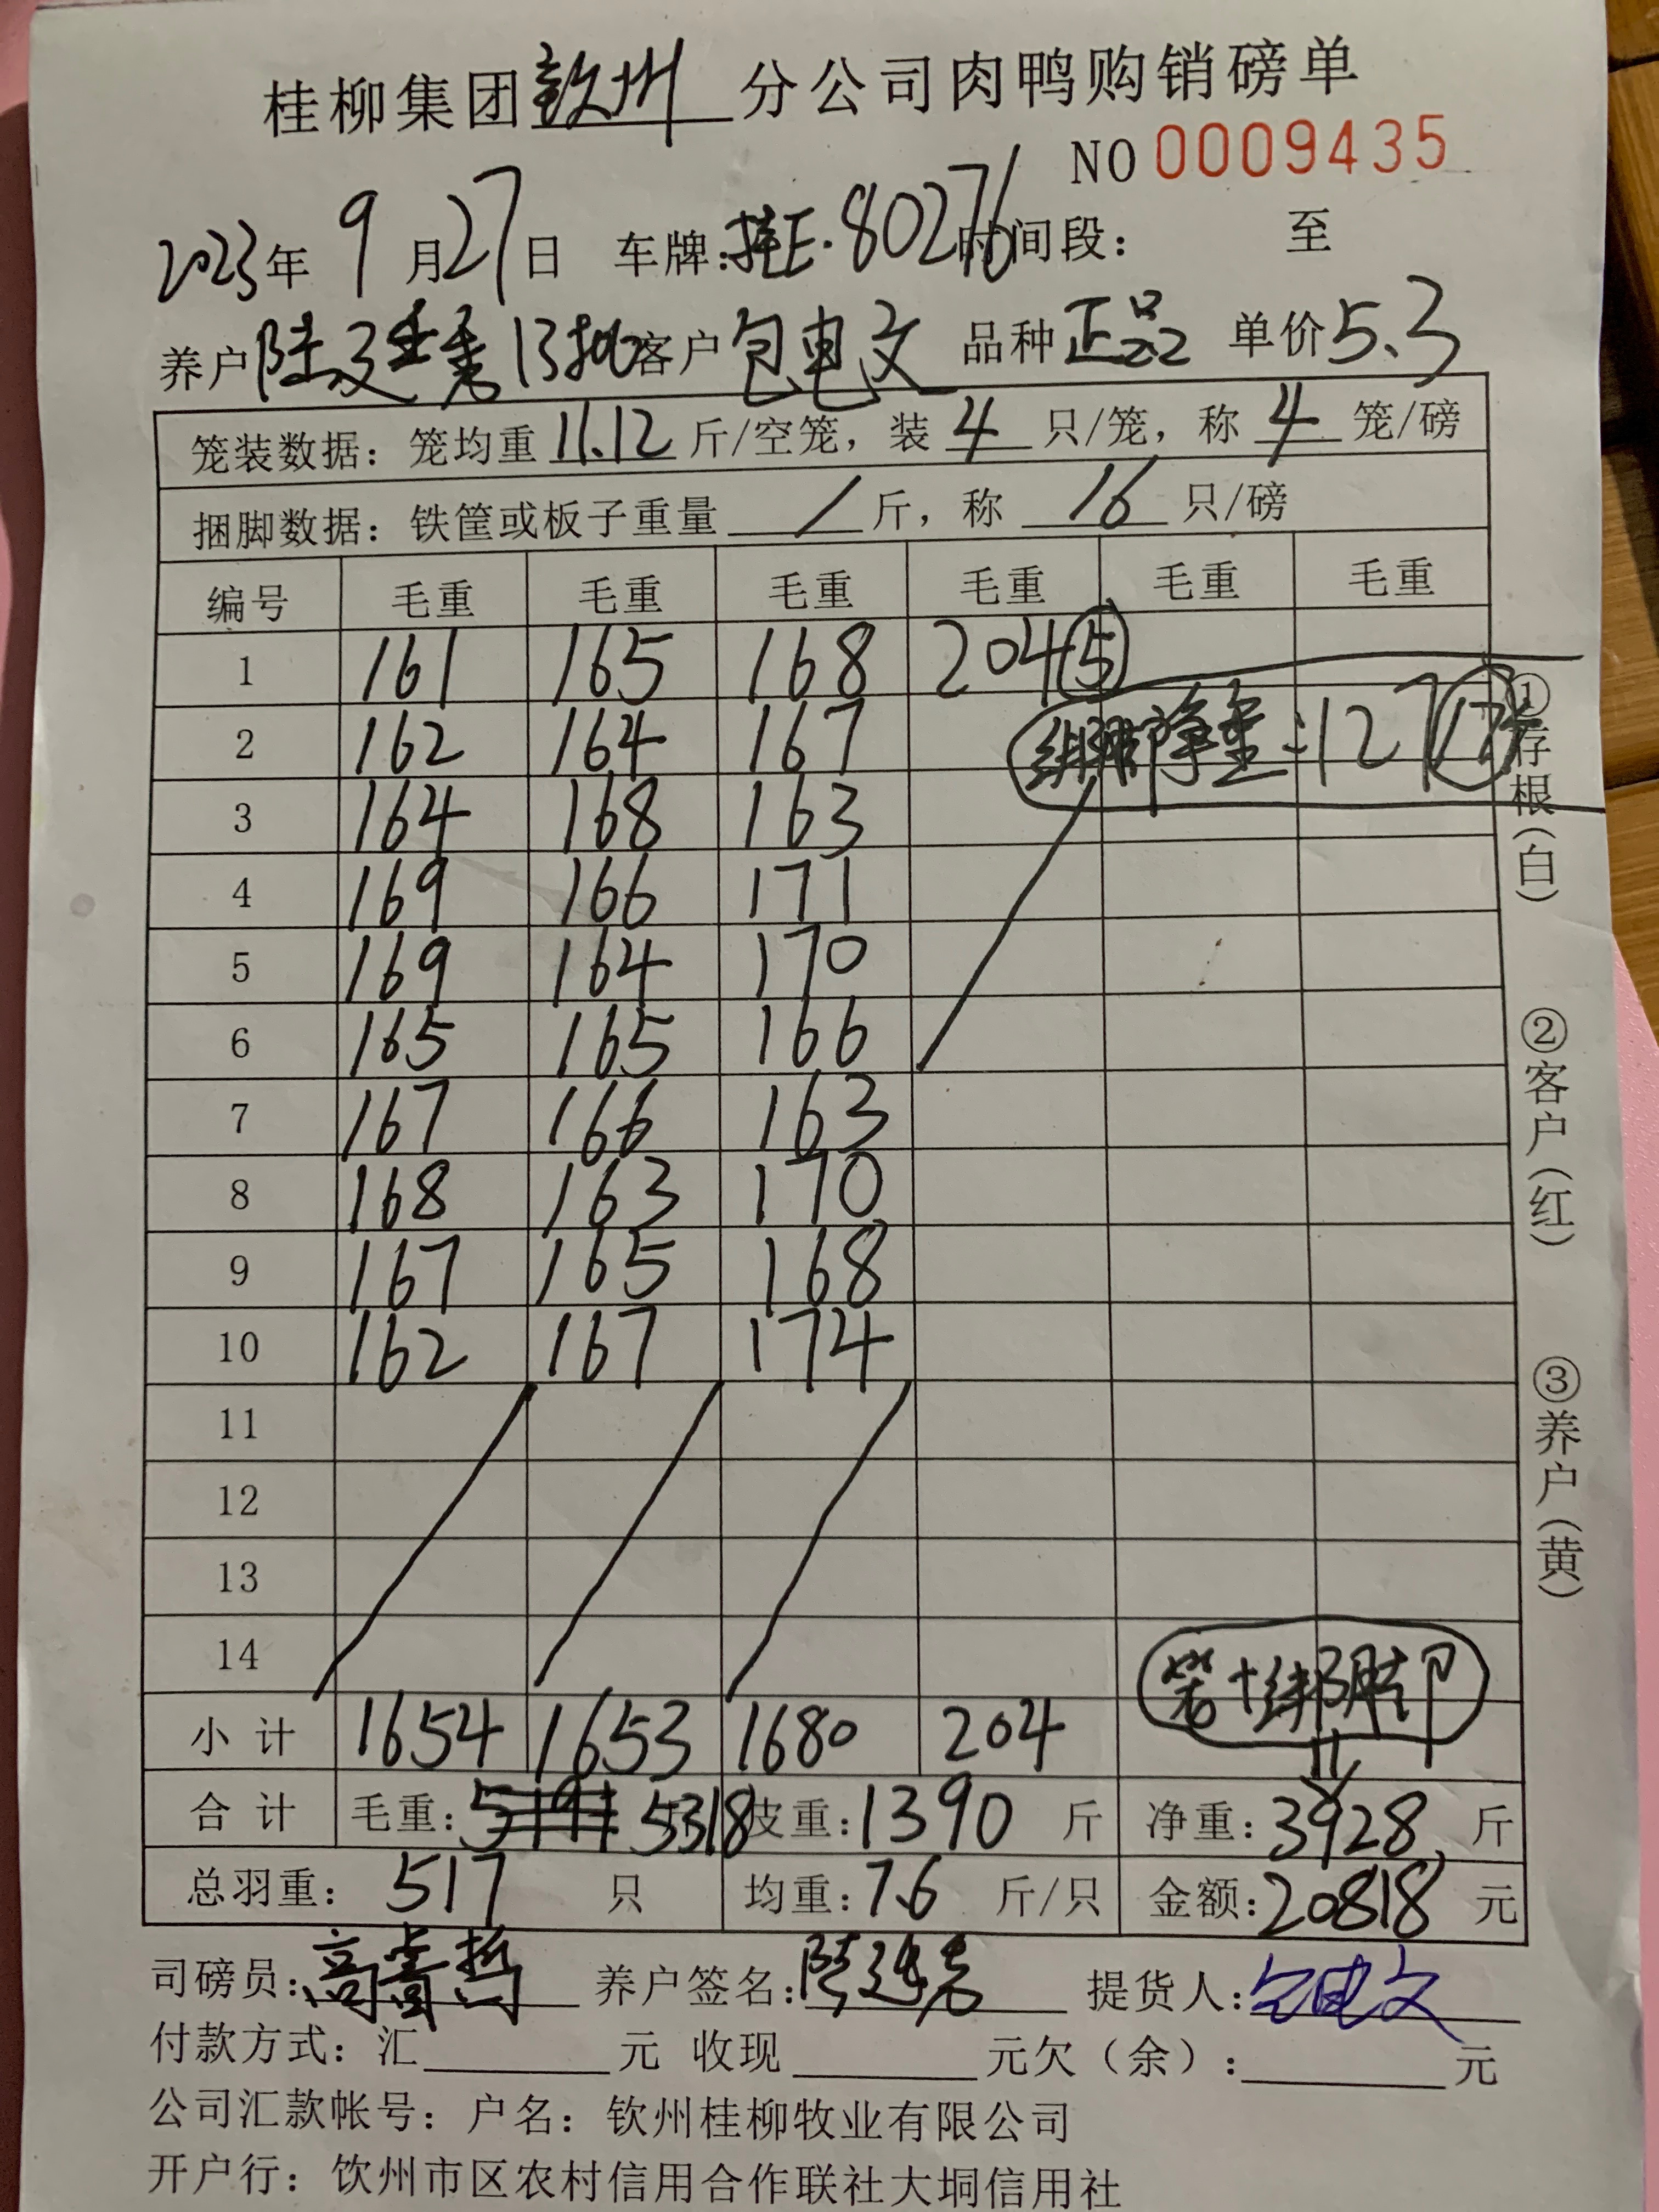 桂柳集团钦州分公司肉鸭购销磅单
NO 0009435
2023年 9月27日 车牌:桂E·80276 时间段: 至
养户 13批 客户 包电文 品种 正品 单价5.3
笼装数据: 笼均重 11.12 斤/空笼, 装 4 只/笼, 称 4 笼/磅
捆脚数据: 铁筐或板子重量 / 斤, 称 16 只/磅
编号 毛重 毛重 毛重 毛重 毛重 毛重
1 161 165 168 204 ⑤
2 162 164 167 绑脚净重:127 ⑰
3 164 168 163
4 169 166 171
5 169 164 170
6 165 165 166
7 167 166 163
8 168 163 170
9 167 165 168
10 162 167 174
11
12
13
14
笼+绑脚
小计 1654 1653 1680 204
合计 毛重: 5191 5318 皮重:1390 斤 净重:3928 斤
总羽重: 517 只 均重:7.6 斤/只 金额:20818 元
司磅员: 养户签名: 提货人:包电文
付款方式: 汇 元 收现 元欠(余): 元
公司汇款帐号: 户名: 钦州桂柳牧业有限公司
开户行: 钦州市区农村信用合作联社大垌信用社
①存根(白) ②客户(红) ③养户(黄)